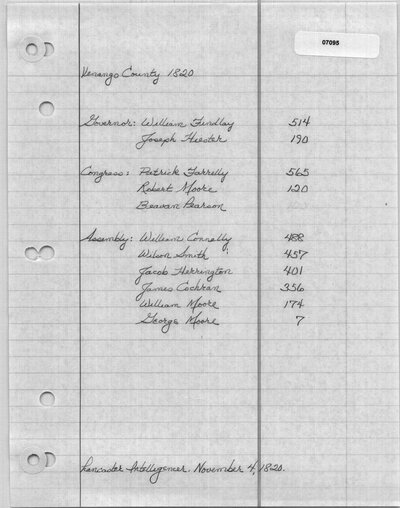 07095
Venango County 1820
Governor: William Findlay 514
Joseph Hiester 190
Congress: Patrick Farrelly 565
Robert Moore 120
Bevan Pearson
Assembly: William Connelly 488
Wilson Smith 457
Jacob Herrington 401
James Cochran 356
William Moore 174
George Moore 7
Lancaster Intelligencer. November 4, 1820.